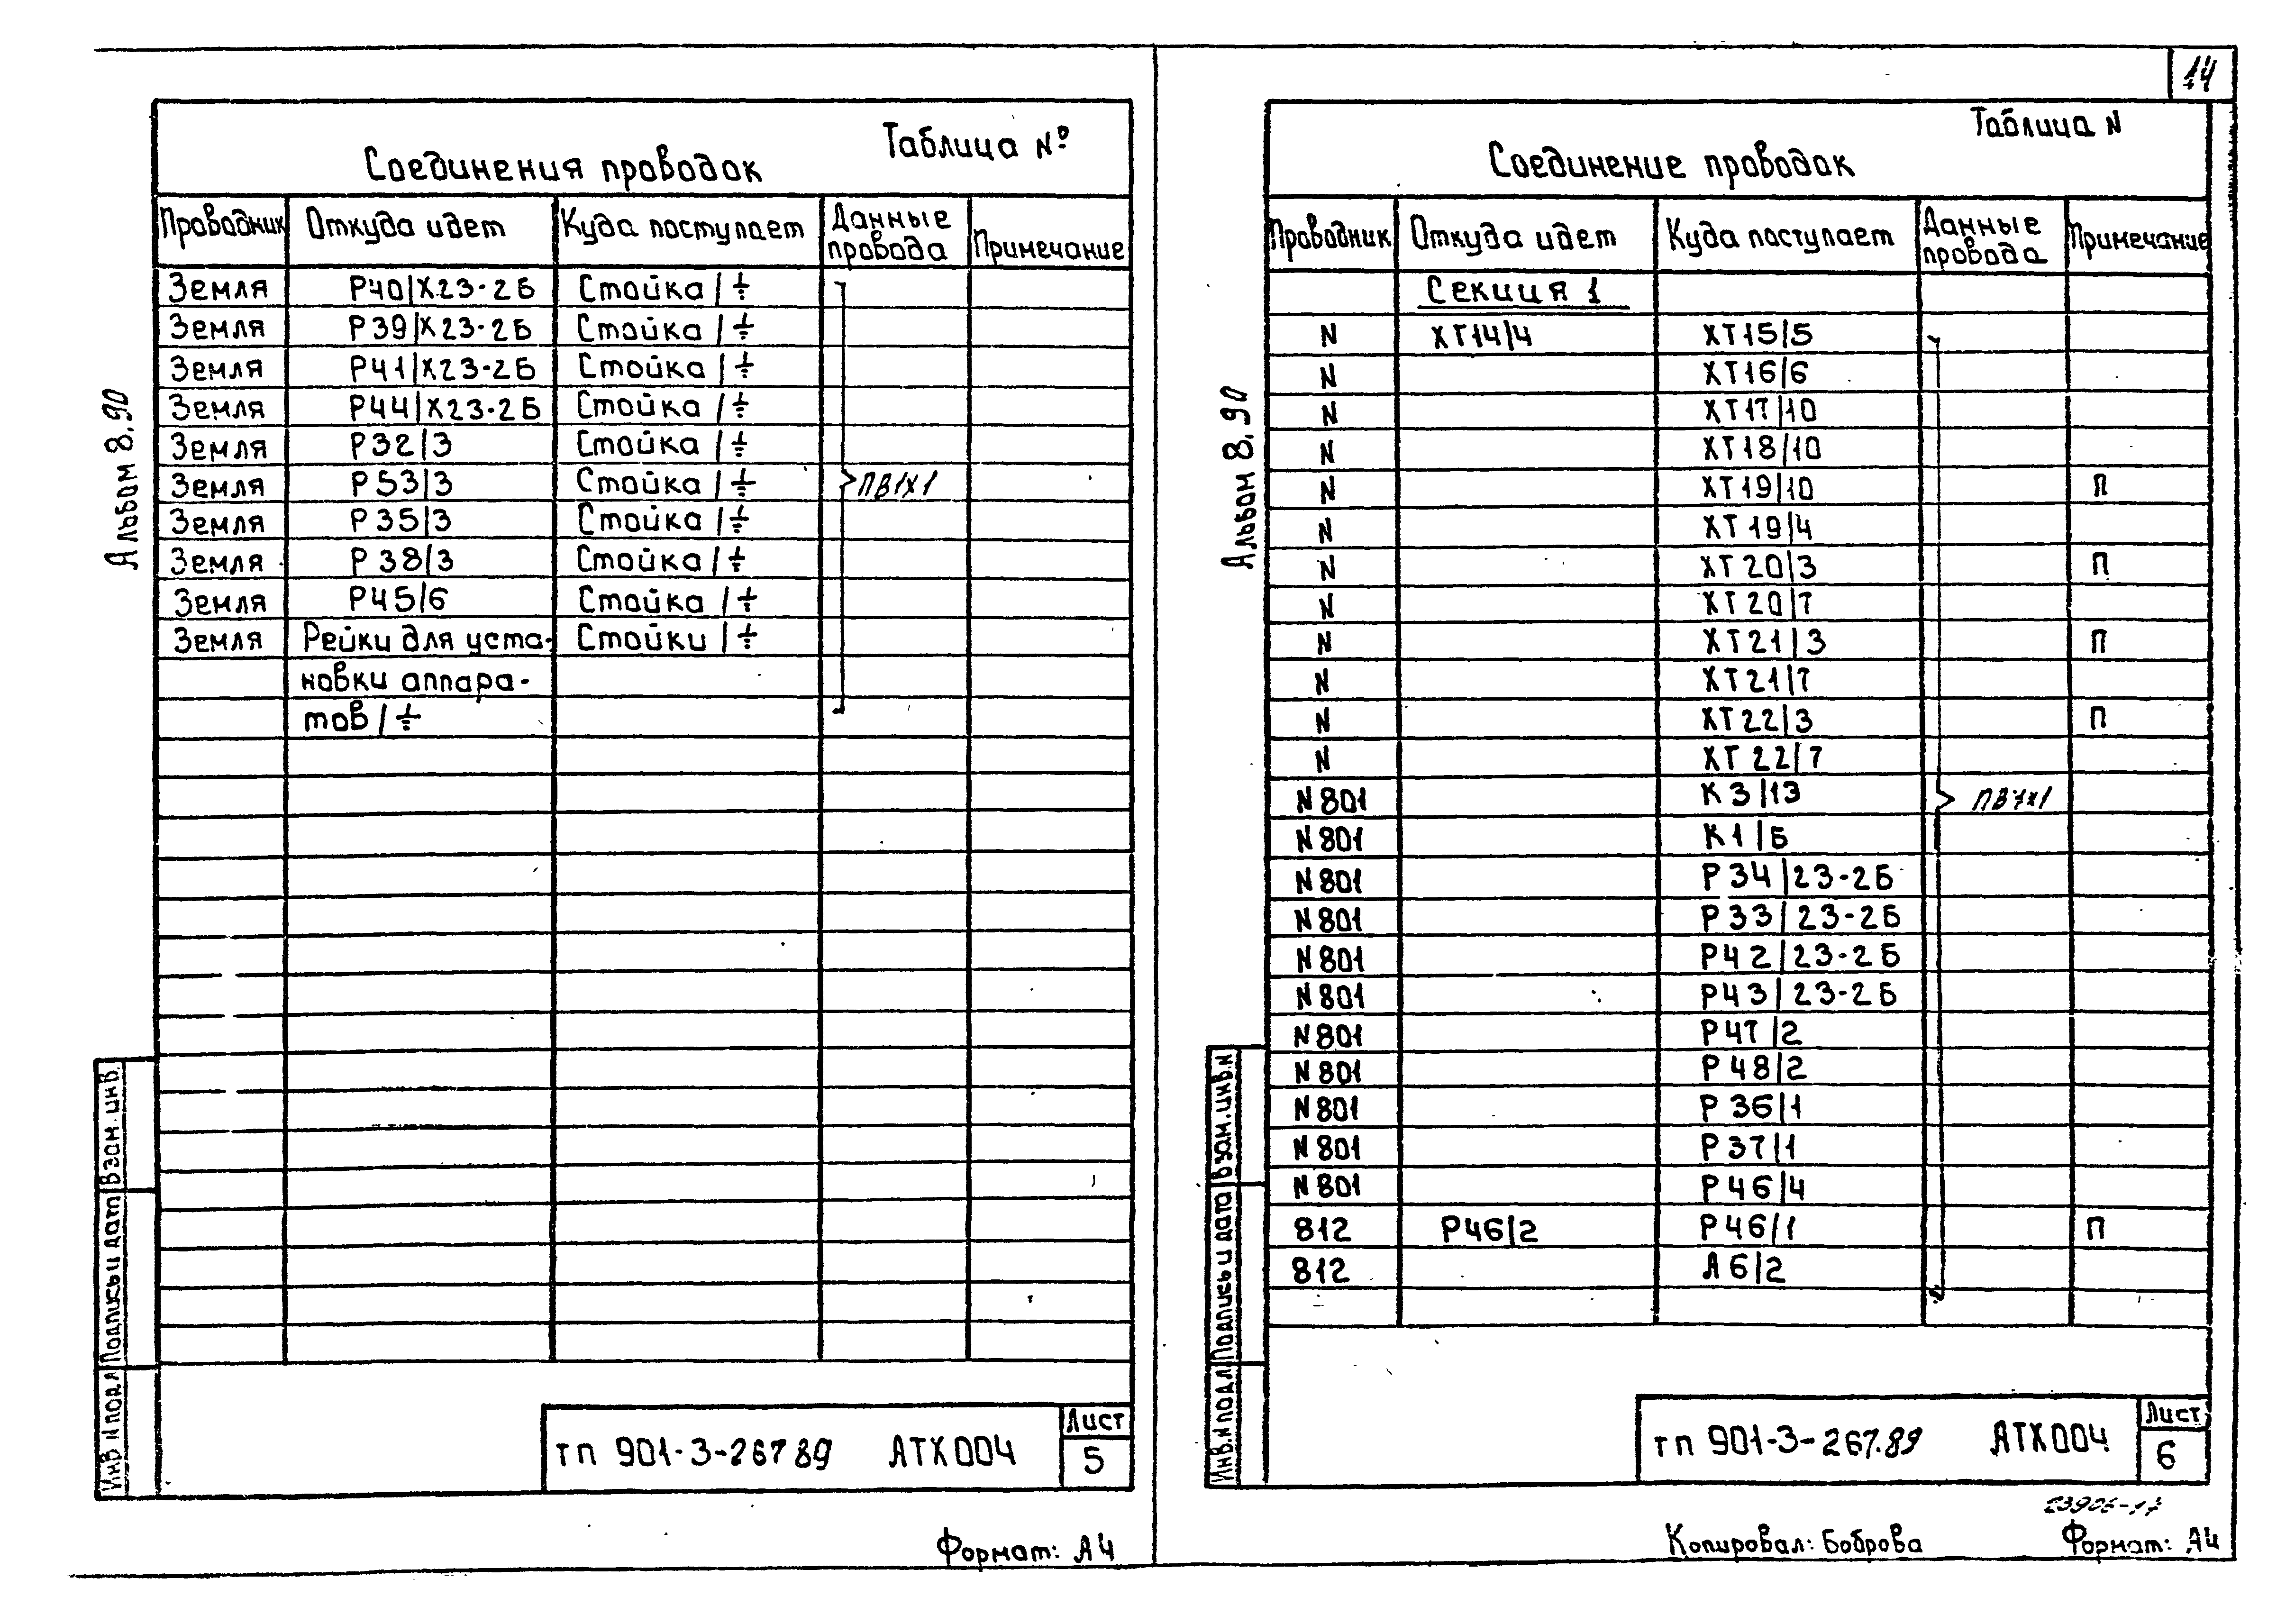 14
Таблица №
Соединения проводок
Проводник Откуда идет Куда поступает Данные провода Примечание
Земля Р40/Х23-2Б Стойка/⏚
Земля Р39/Х23-2Б Стойка/⏚
Земля Р41/Х23-2Б Стойка/⏚
Земля Р44/Х23-2Б Стойка/⏚
Земля Р32/3 Стойка/⏚
Земля Р53/3 Стойка/⏚ ПВ1Х1
Земля Р35/3 Стойка/⏚
Земля Р38/3 Стойка/⏚
Земля Р45/6 Стойка/⏚
Земля Рейки для уста- Стойки/⏚
новки аппара-
тов/⏚
Альбом 8.90
Взам. инв.
Подпись и дата
Инв N подл
тп 901-3-26789 АТХ004
Лист
5
Формат: А4
Таблица N
Соединение проводок
Проводник Откуда идет Куда поступает Данные провода Примечание
Секция 1
N ХТ14/4 ХТ15/5
N ХТ16/6
N ХТ17/10
N ХТ18/10
N ХТ19/10 П
N ХТ19/4
N ХТ20/3 П
N ХТ20/7
N ХТ21/3 П
N ХТ21/7
N ХТ22/3 П
N ХТ22/7
N801 К3/13 ПВ1х1
N801 К1/Б
N801 Р34/23-2Б
N801 Р33/23-2Б
N801 Р42/23-2Б
N801 Р43/23-2Б
N801 Р47/2
N801 Р48/2
N801 Р36/1
N801 Р37/1
N801 Р46/4
812 Р46/2 Р46/1 П
812 А6/2
Альбом 8.90
Взам. инв. N
Подпись и дата
Инв. N подл
тп 901-3-267.89 АТХ004
Лист
6
Копировал: Боброва
Формат: А4